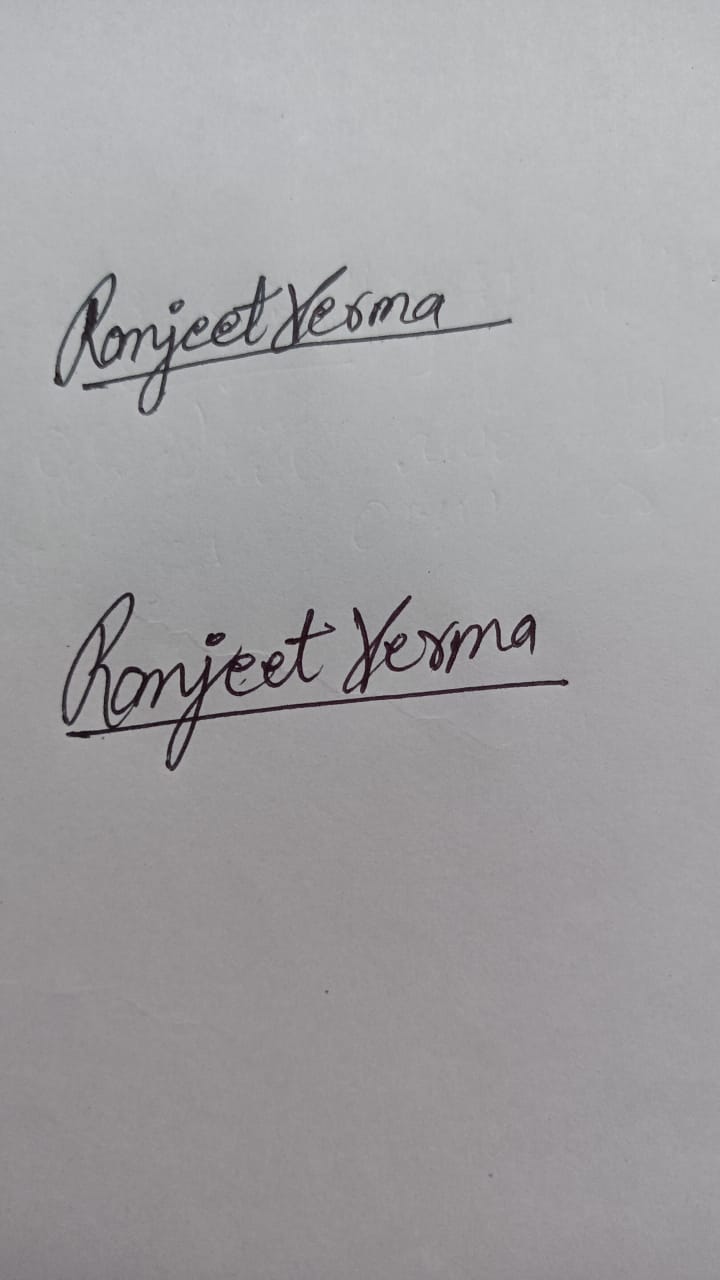 Ranjeet Verma
Ranjeet Verma